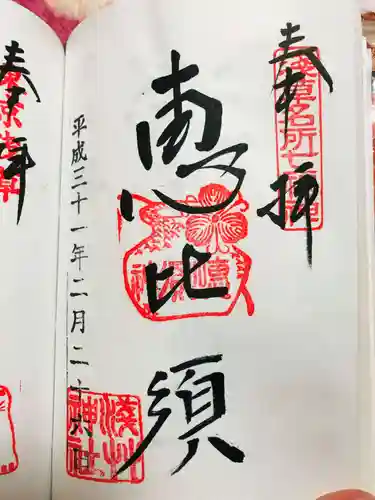 奉拝
浅草名所七福神
恵比須
平成三十一年二月二十六日
浅草神社
奉拝